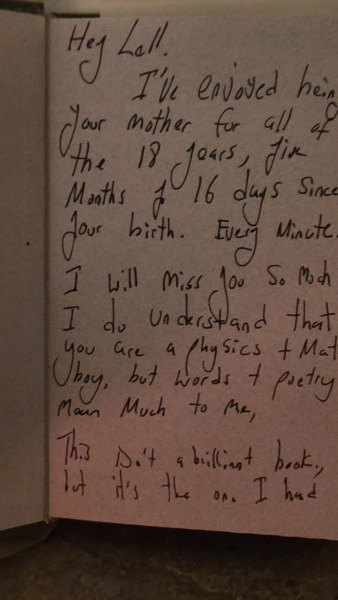 Hey Lell.
I've enjoyed bein
your mother for all of
the 18 years, five
Months & 16 days since
your birth. Every Minute.
I will miss you so Much
I do understand that
you are a physics + Mat
boy, but words + poetry
mean Much to me,
This isn't a brilliant book,
but it's the one I had